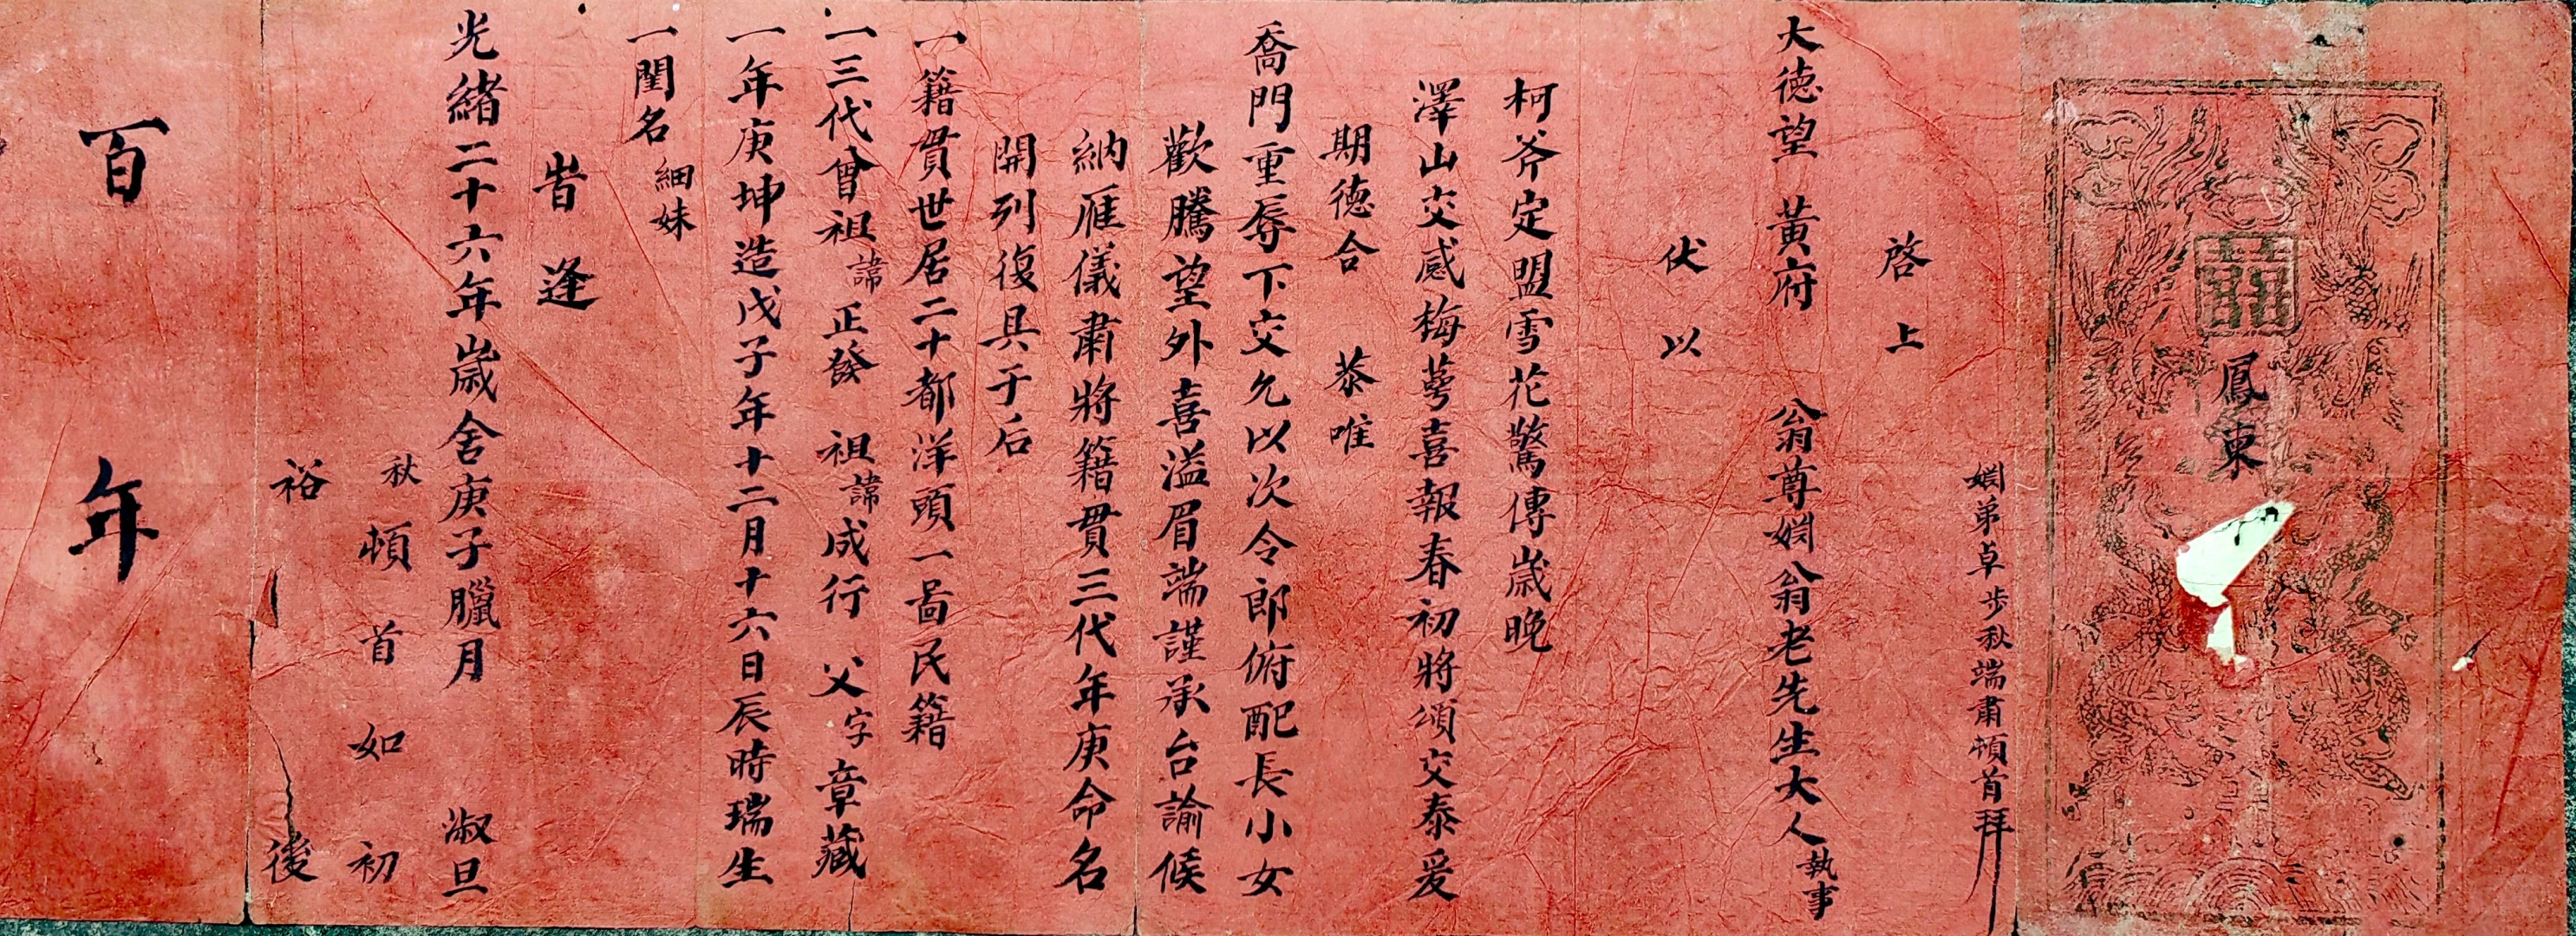 囍
鳳東
姻弟卓步秋端肅頓首拜
啓上
大德望 黃府 翁尊姻翁老先生大人執事
伏以
柯斧定盟雪花驚傳歲晚
澤山交感梅萼喜報春初將頌交泰爰
期德合 恭唯
喬門重辱下交允以次令郎俯配長小女
歡騰望外喜溢眉端謹承台諭候
納雁儀肅將籍貫三代年庚命名
開列復具于后
一籍貫世居二十都洋頭一啚民籍
一三代曾祖諱正發 祖諱成行 父字章藏
一年庚坤造戊子年十二月十六日辰時瑞生
一閨名細妹
旹逢
光緒二十六年歲舍庚子臘月 淑旦
秋頓首如初
裕後
百年